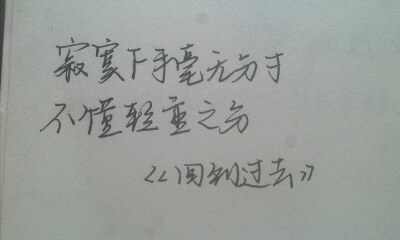 寂寞下手毫无分寸
不懂轻重之分
《回到过去》